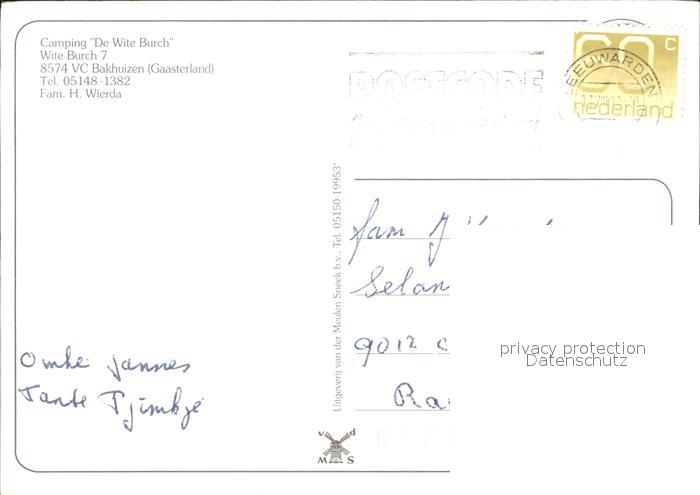 Camping "De Wite Burch"
Wite Burch 7
8574 VC Bakhuizen (Gaasterland)
Tel. 05148-1382
Fam. H. Wierda
POSTCODE
LEEUWARDEN
60 C
nederland
Uitgeverij van der Meulen Sneek b.v., Tel. 05150-19953*
fam
Selan
9012 C
Ra
privacy protection
Datenschutz
Omke Jannes
Tante Tjimkje
v d
M S